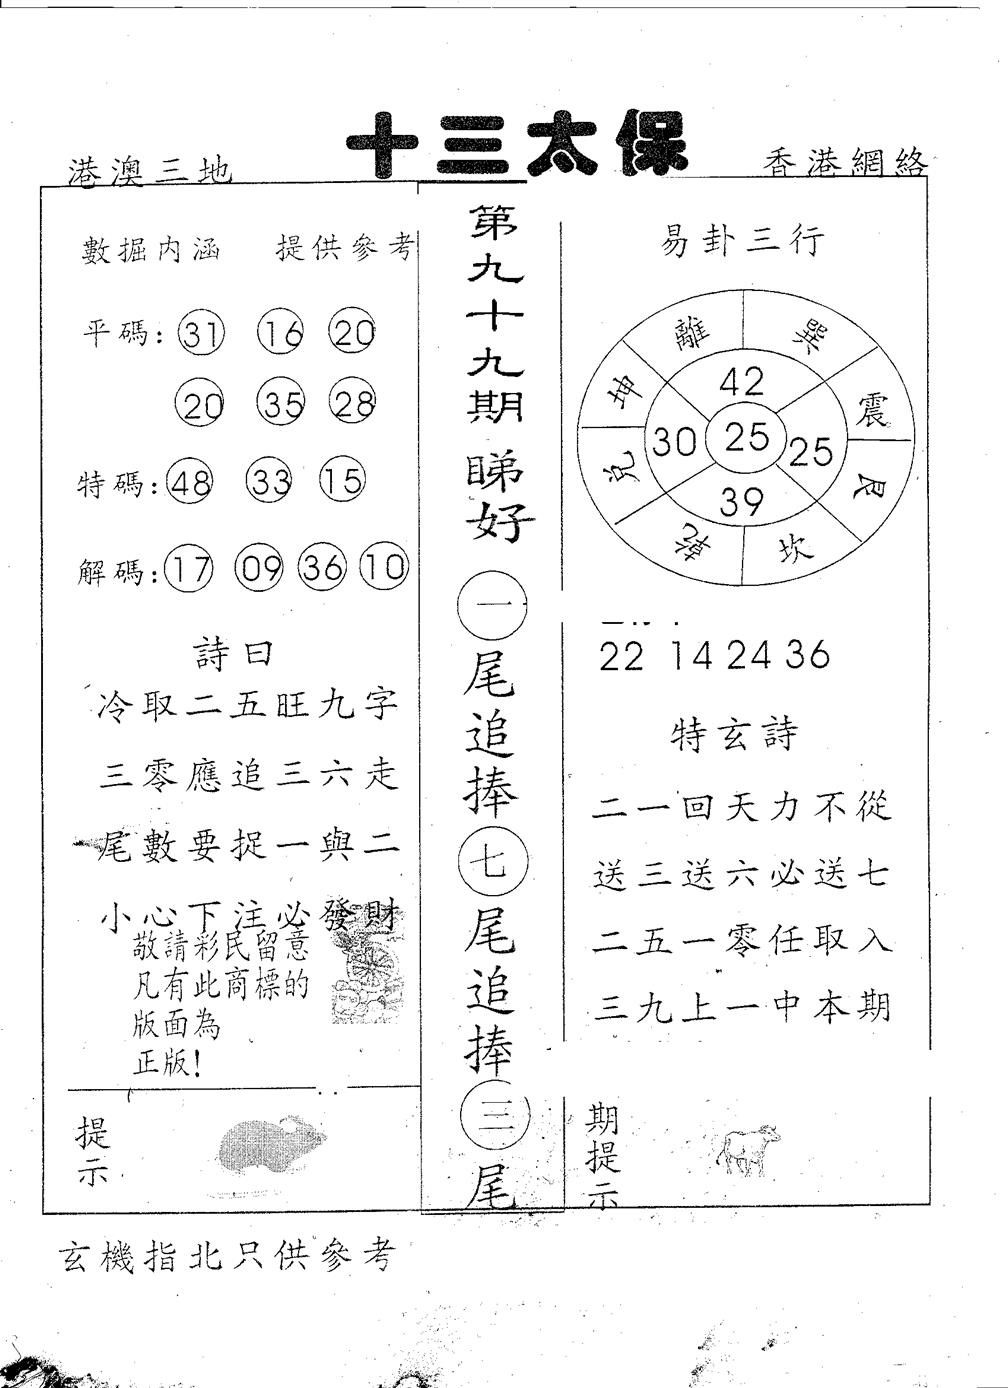 十三太保
港澳三地
香港網絡
數掘内涵 提供參考
平碼: 31 16 20
20 35 28
特碼: 48 33 15
解碼: 17 09 36 10
詩曰
冷取二五旺九字
三零應追三六走
尾數要捉一與二
小心下注必發財
敬請彩民留意
凡有此商標的
版面為
正版!
提示
第九十九期睇好
一尾追捧七尾追捧三尾
易卦三行
離 巽 震 艮 坎 乾 兑 坤
42
30 25 25
39
22 14 24 36
特玄詩
二一回天力不從
送三送六必送七
二五一零任取入
三九上一中本期
期提示
玄機指北只供參考